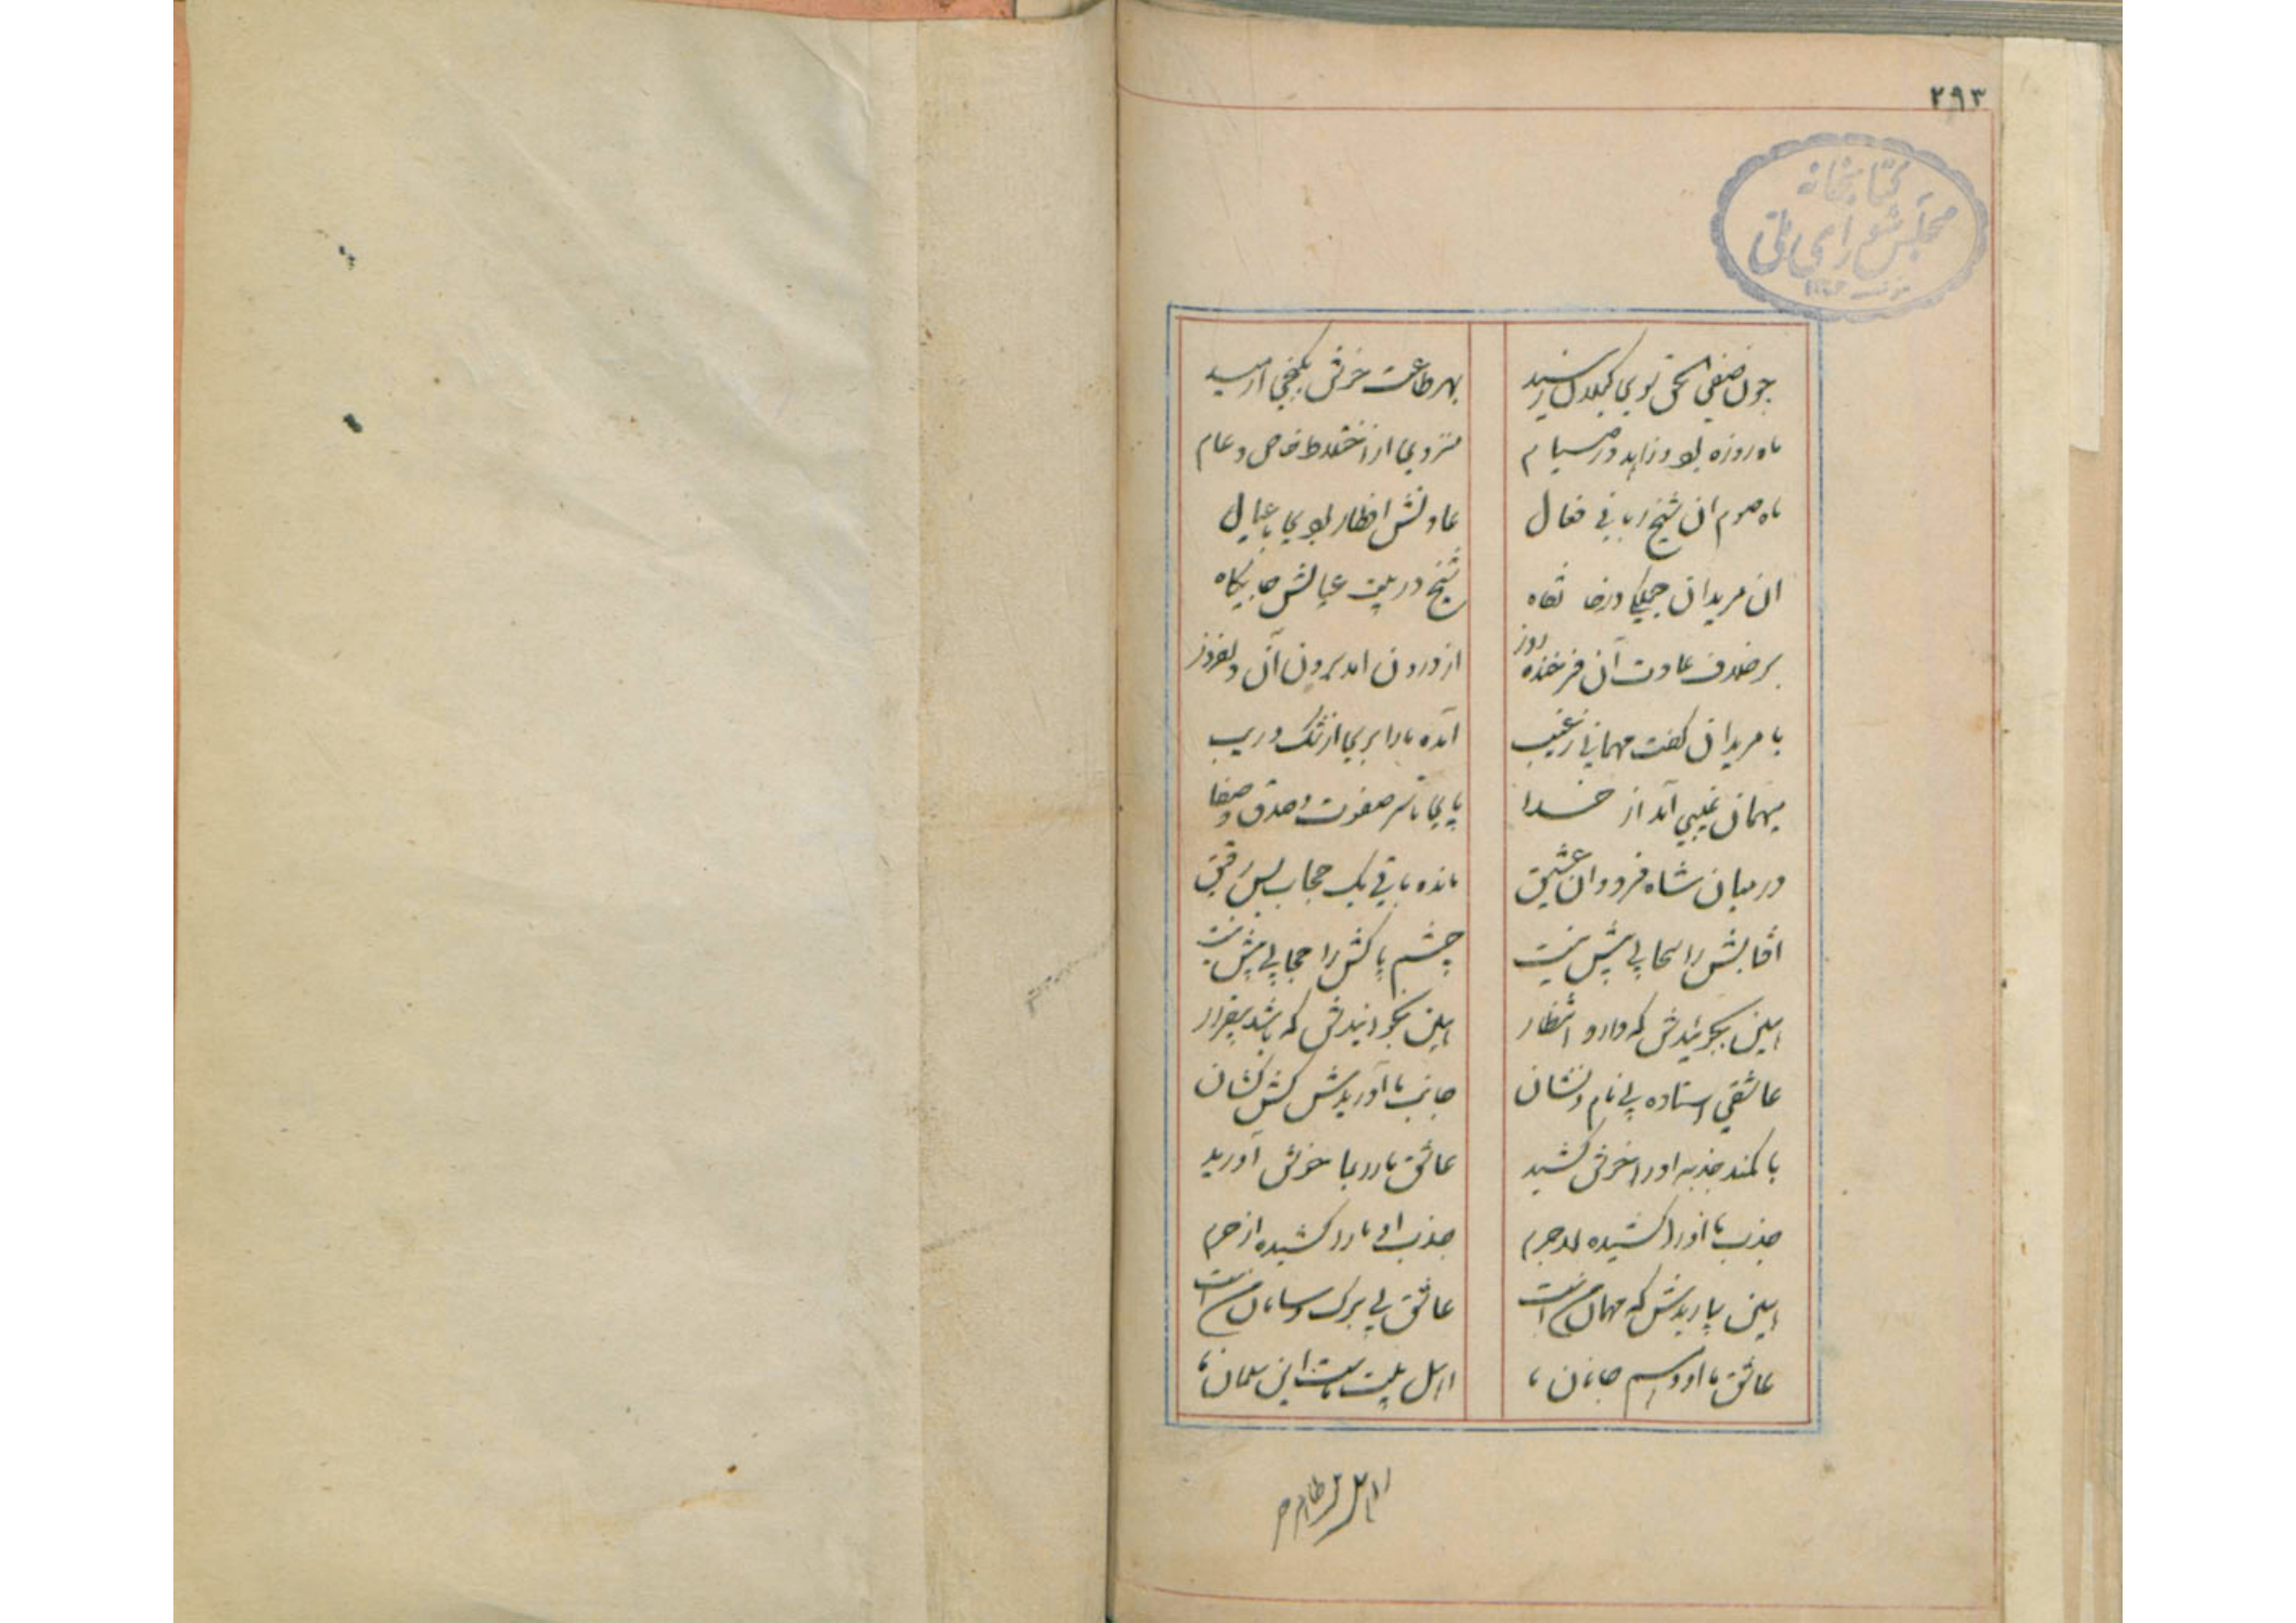 ۲۹۳
کتابخانه
مجلس شورای ملی
چون صفی الحق بوی کیلان رسید بهر طاعت خرقی بکنجی آرمید
ماه روزه بود و زاهد در صیام منزوی از اختلاط خاص و عام
ماه صوم ان شیخ ربانی فعال عادتش افطار بودی با عیال
ان مریدان جملکی در خانقاه شیخ در بیت عیالش جایگاه
بر خلاف عادت آن فرخنده روز از درون امد برون آن دلفروز
با مریدان کفت مهمانی ز غیب آمده ما را بری از شک و ریب
میهمان غیبی آمد از خدا پای تا سر صفوت و صدق و صفا
در میان شاه فرد و ان عشیق مانده باقی یک حجاب بس رقیق
افتابش را سحابی پیش نیست چشم پاکش را حجابی پیش نیست
این بجوئیدش که دارد انتظار این بخوانیدش که باشد بیقرار
عاشقی استاده بی نام و نشان جانب ما آوریدش کش کشان
با کمند جذبه او را خوش کشید عاشق ما را بما خوش آورید
جذب ما او را کشیده لاجرم جذب او ما را کشیده از حرم
این بیاریدش که مهمان من است عاشق بی برک و سامان من است
عاشق ما او و اسم جانان ما اهل بیت ماست این سلمان ما